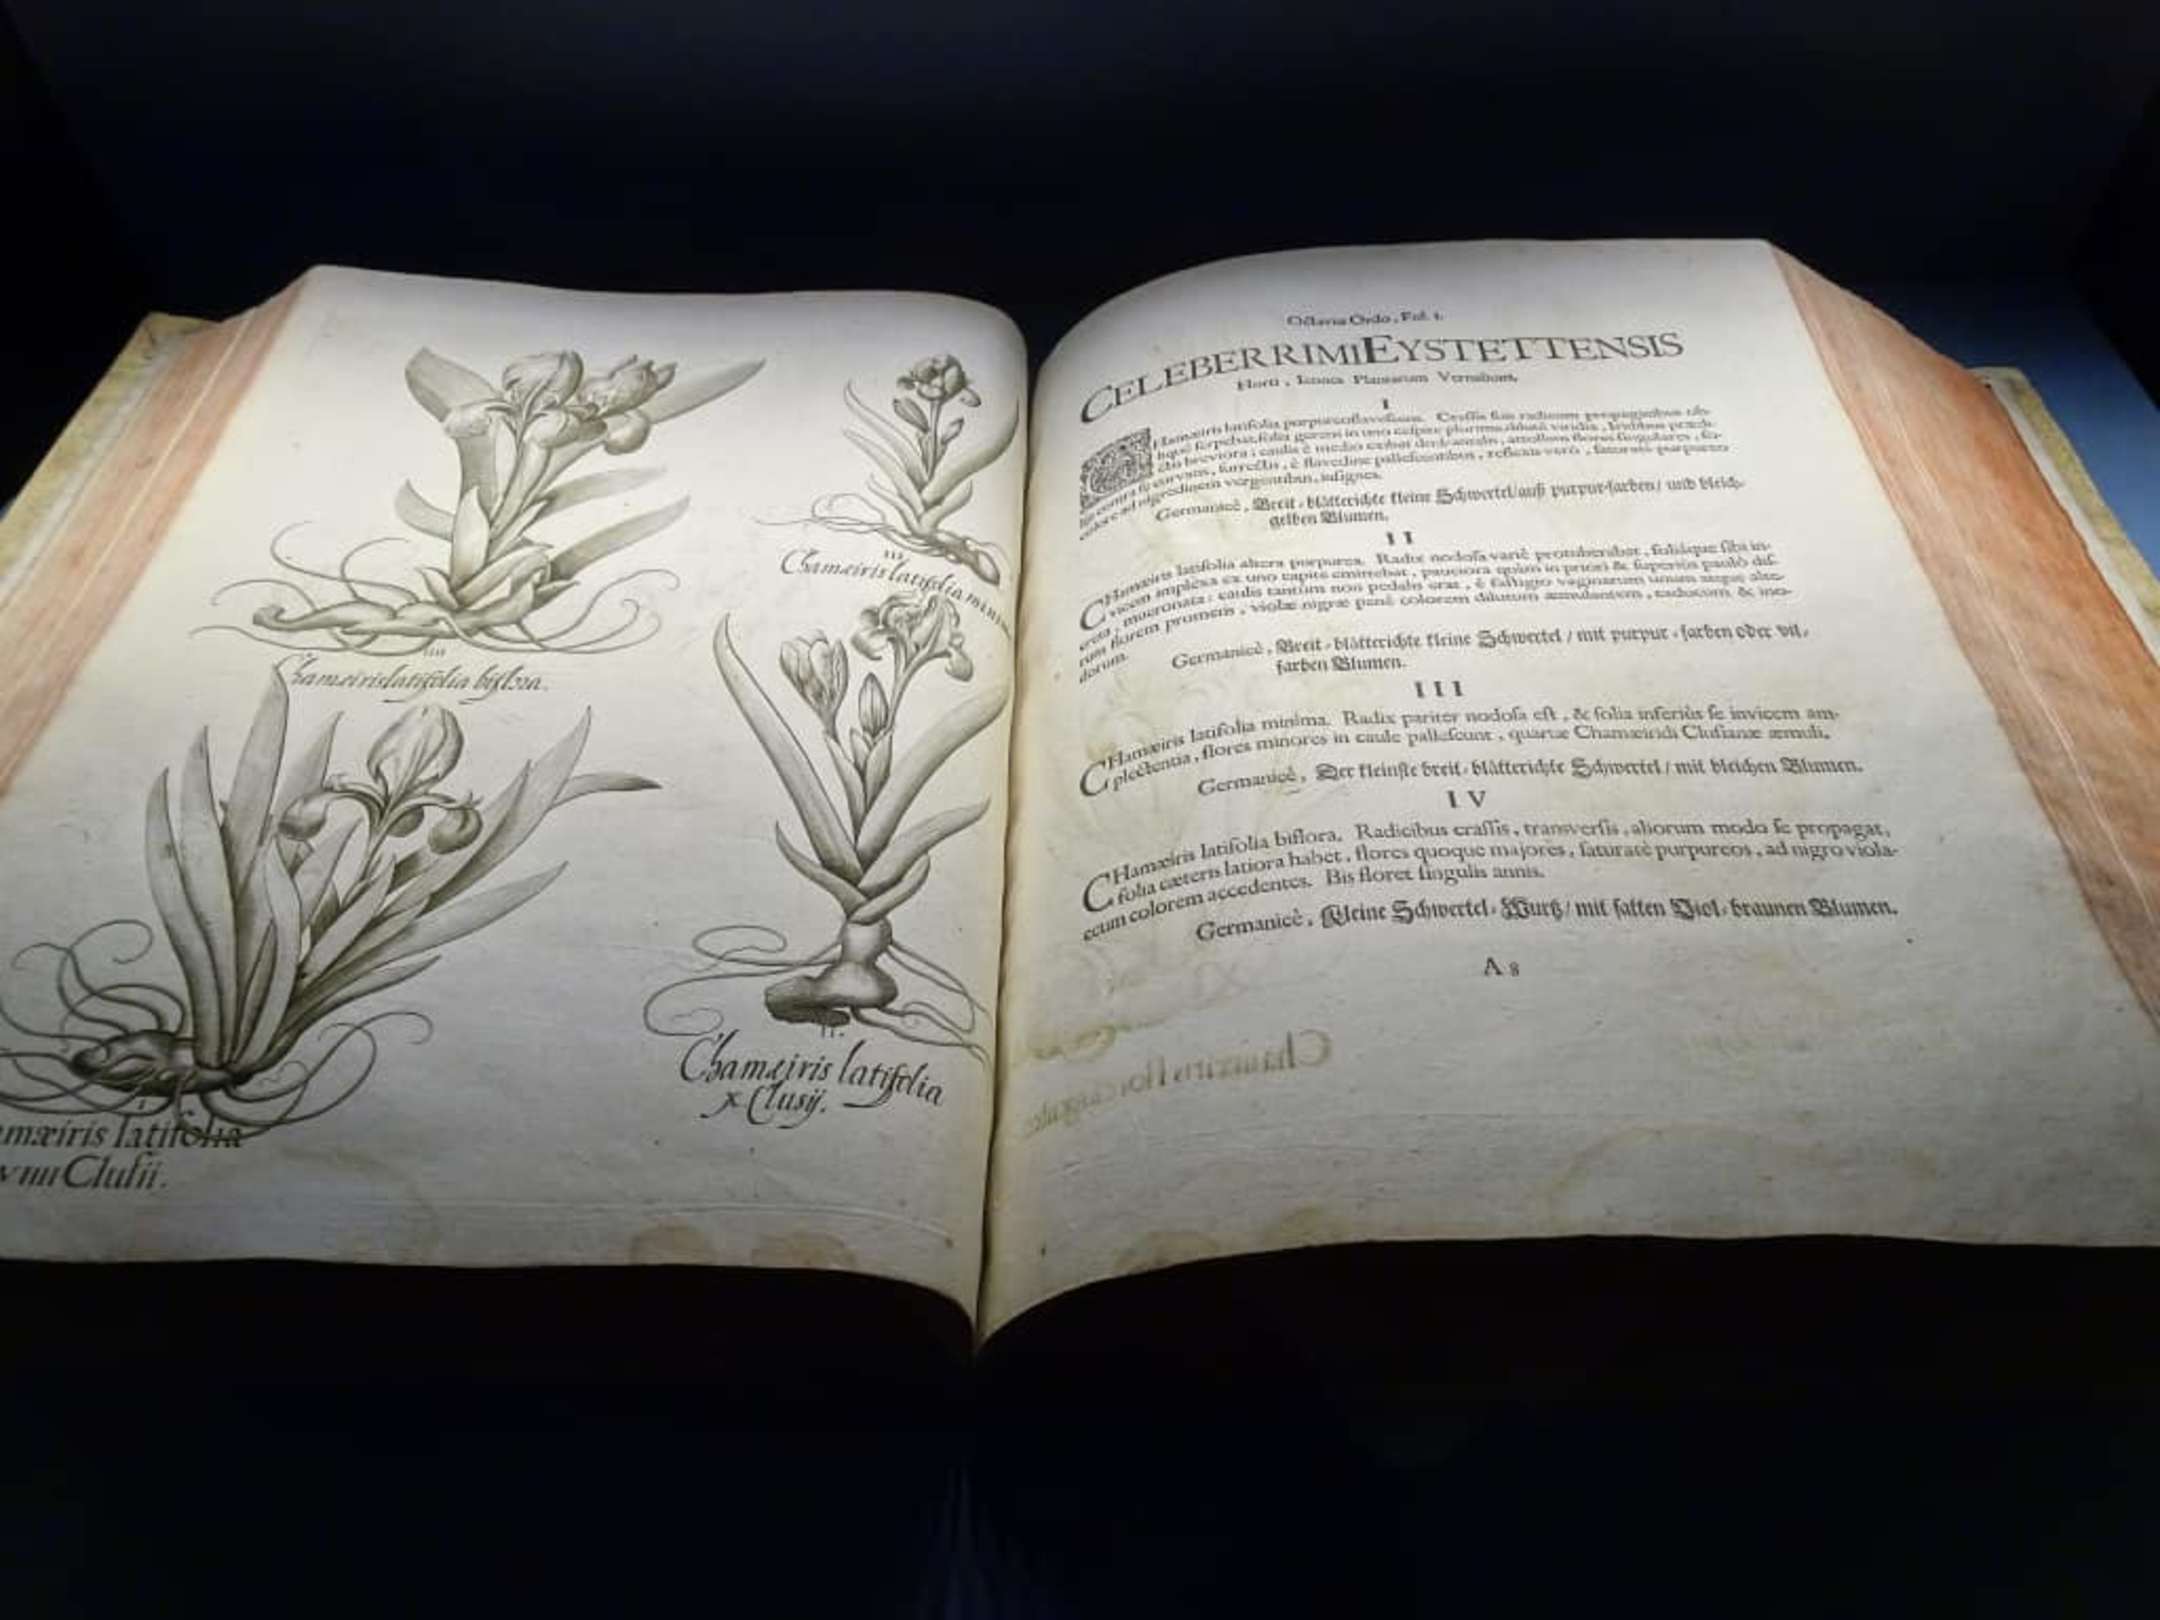 IIII
Chamæiris latifolia biflora.
III
Chamæiris latifolia minima
II.
Chamæiris latifolia
x Clusij.
I
amæiris latifolia
viiii Clusii.
Octavus Ordo, Fol. 1.
CELEBERRIMI EYSTETTENSIS
Horti, Icones Plantarum Vernalium,
I
CHamæiris latifolia purpureoflavescens. Crassis suis radicum propaginibus
caulis è medio
nigredinem vergentibus, insignes.
Germanicè, Breit-blätterichte kleine Schwertel/auß purpur-farben/ und bleich-
gelben Blumen.
II
CHamæiris latifolia altera purpurea. Radix nodosa variè protuberabat, foliáque sibi in-
vicem implexa ex uno capite emittebat, pauciora quàm in priori & superiùs paulò dis-
creta, mucronata: caulis tantùm non pedalis erat, è fastigio vaginarum unum atque alte-
rum florem promens, violæ nigræ penè colorem dilutum æmulantem, caducum & ino-
dorum.
Germanicè, Breit-blätterichte kleine Schwertel / mit purpur-farben oder vil-
farben Blumen.
III
CHamæiris latifolia minima. Radix pariter nodosa est, & folia inferiùs se invicem am-
plectentia, flores minores in caule pallescunt, quartæ Chamæiridi Clusianæ æmuli.
Germanicè, Der kleinste breit-blätterichte Schwertel / mit bleichen Blumen.
IV
CHamæiris latifolia biflora. Radicibus crassis, transversis, aliorum modo se propagat,
folia cæteris latiora habet, flores quoque majores, saturatè purpureos, ad nigro viola-
ceum colorem accedentes. Bis floret singulis annis.
Germanicè, Kleine Schwertel-Wurtz/ mit satten Viol-braunen Blumen.
A 8